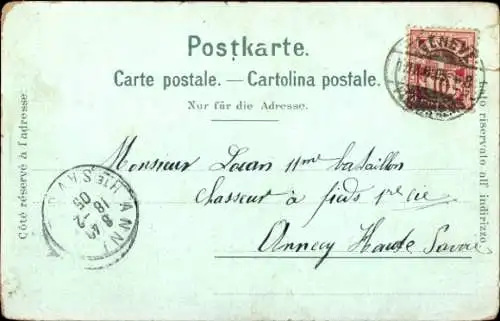 Postkarte.
Carte postale. — Cartolina postale.
Nur für die Adresse.
Côté réservé à l'adresse.
Lato riservato all' indirizzo.
GENÈVE
Monsieur 11me bataillon
Chasseur à pieds 1re cie
Annecy Haute Savoie
ANN
HTE SAV
8 40
18-2
05